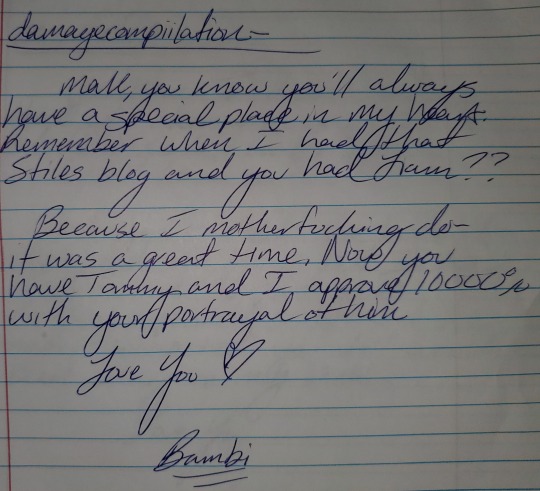 damagecompiilation-
Matt, you know you'll always
have a special place in my heart.
Remember when I had that
Stiles blog and you had Liam??
Because I motherfucking do-
it was a great time. Now you
have Tommy and I approve 10000%
with your portrayal of him
Love You ♡
Bambi